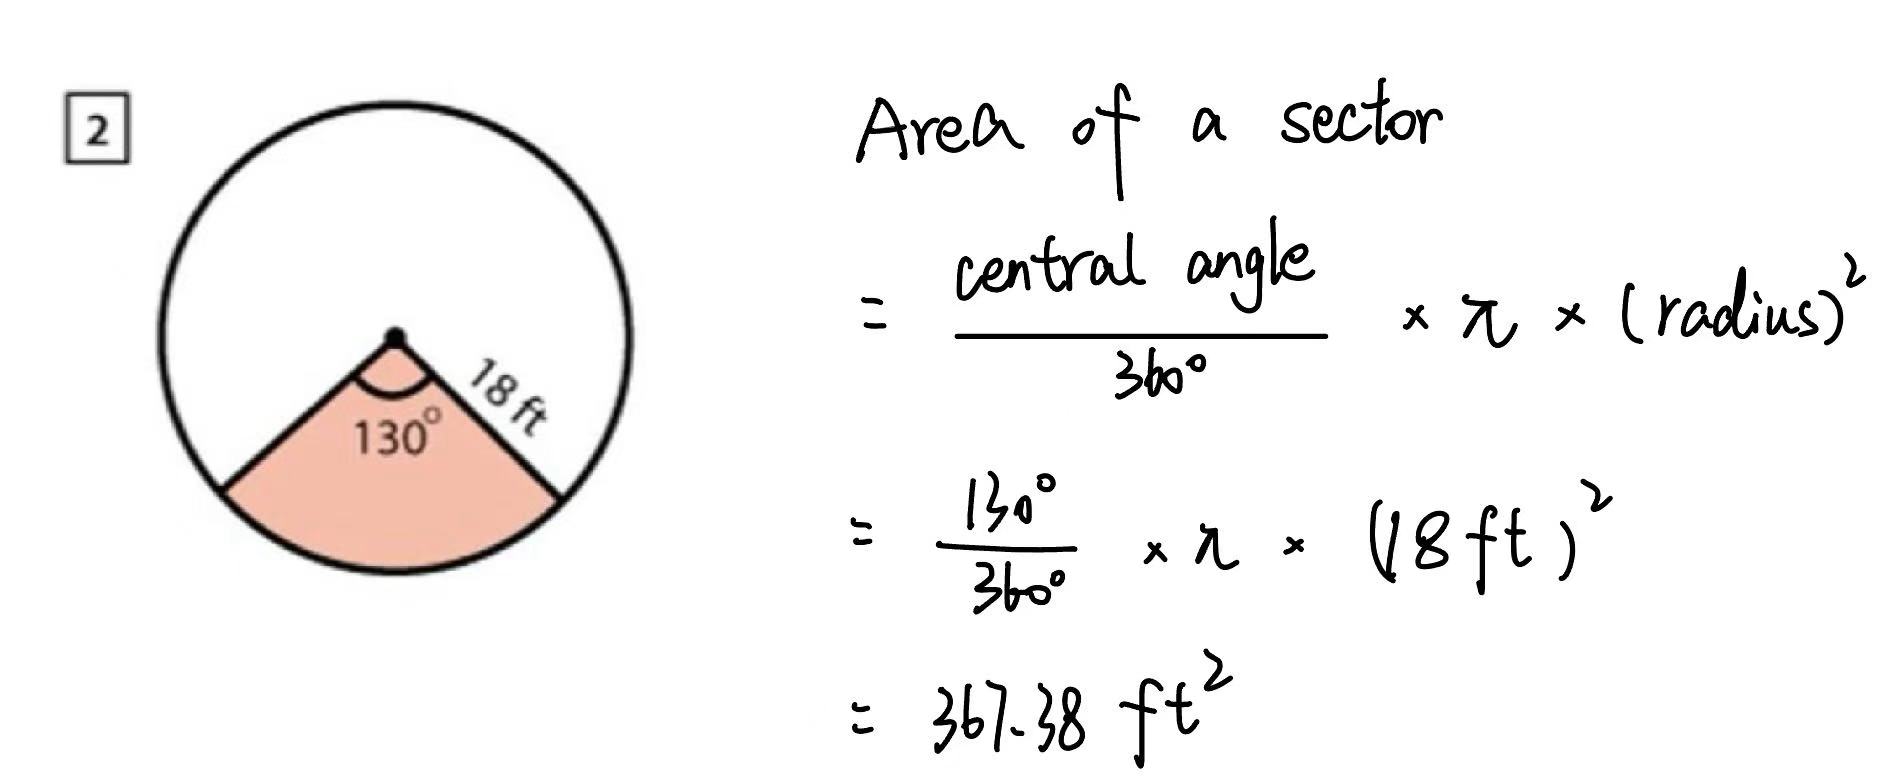 2
130°
18 ft
Area of a sector
= central angle / 360° × π × (radius)²
= 130° / 360° × π × (18 ft)²
= 367.38 ft²